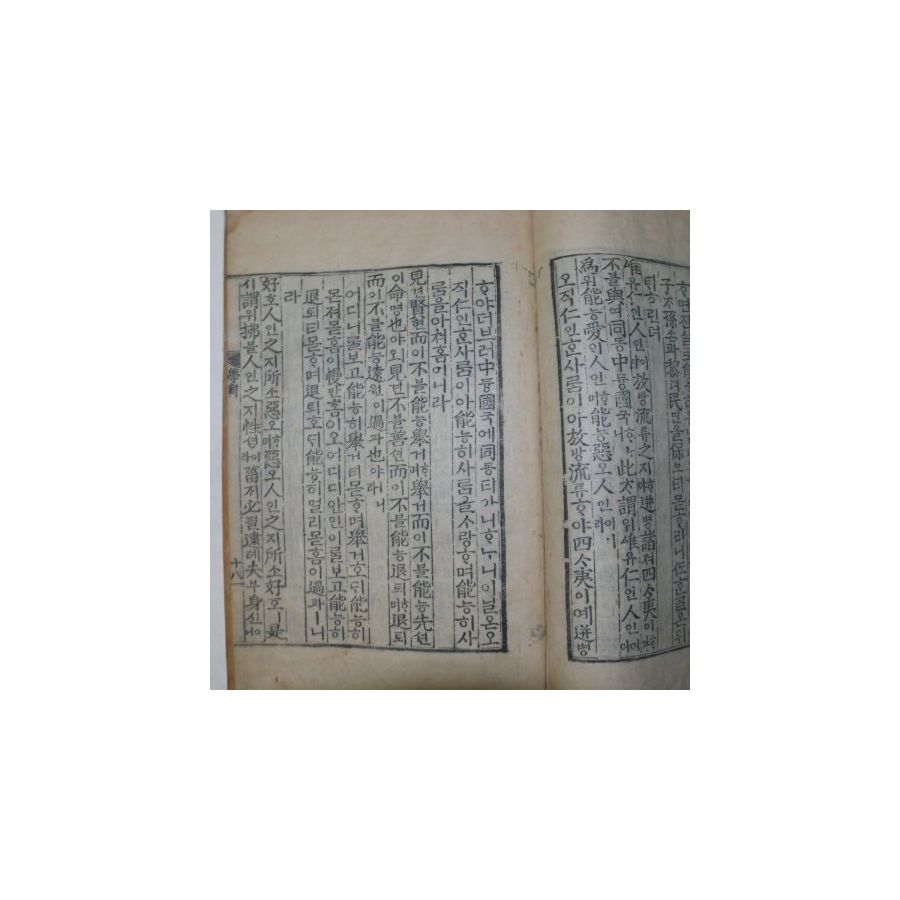 子ᄌᆞ孫손과黎려民민을保보티몯ᄒᆞ리니
린뎌
唯유仁인人인이放방流류之지ᄒᆞ야迸병諸져四ᄉᆞ夷이ᄒᆞ야
不블與여同동中듕國국ᄒᆞᄂᆞ니此ᄎᆞ謂위唯유仁인人인이아
爲위能능愛ᄋᆡ人인ᄒᆞ며能능惡오人인이니라
오직仁인ᄒᆞᆫ사ᄅᆞᆷ이아放방流류ᄒᆞ야四ᄉᆞ夷이예迸병
ᄒᆞ야더브러中듕國국에同동티가니ᄒᆞᄂᆞ니이닐온오
직仁인ᄒᆞᆫ사ᄅᆞᆷ이아能능히사ᄅᆞᆷ을ᄉᆞ랑ᄒᆞ며能능히사
ᄅᆞᆷ을아쳐홈이니라
見견賢현而이不블能능擧거ᄒᆞ며擧거而이不블能능先션
이命명也야ㅣ오見견不블善션而이不블能능退퇴ᄒᆞ며退퇴
而이不블能능遠원이過과也야ㅣ니라
어디니ᄅᆞᆯ보고能능히擧거티몯ᄒᆞ며擧거호ᄃᆡ能능히
몬져몯홈이慢만홈이오어디디안인이ᄅᆞᆯ보고能능히
退퇴티몯ᄒᆞ며退퇴호ᄃᆡ能능히멀리몯홈이過과ㅣ니
라
好호人인之지所소惡오ᄒᆞ며惡오人인之지所소好호ㅣ是
시謂위拂블人인之지性셩이라菑ᄌᆡ必필逮톄夫부身신이니
學
十八